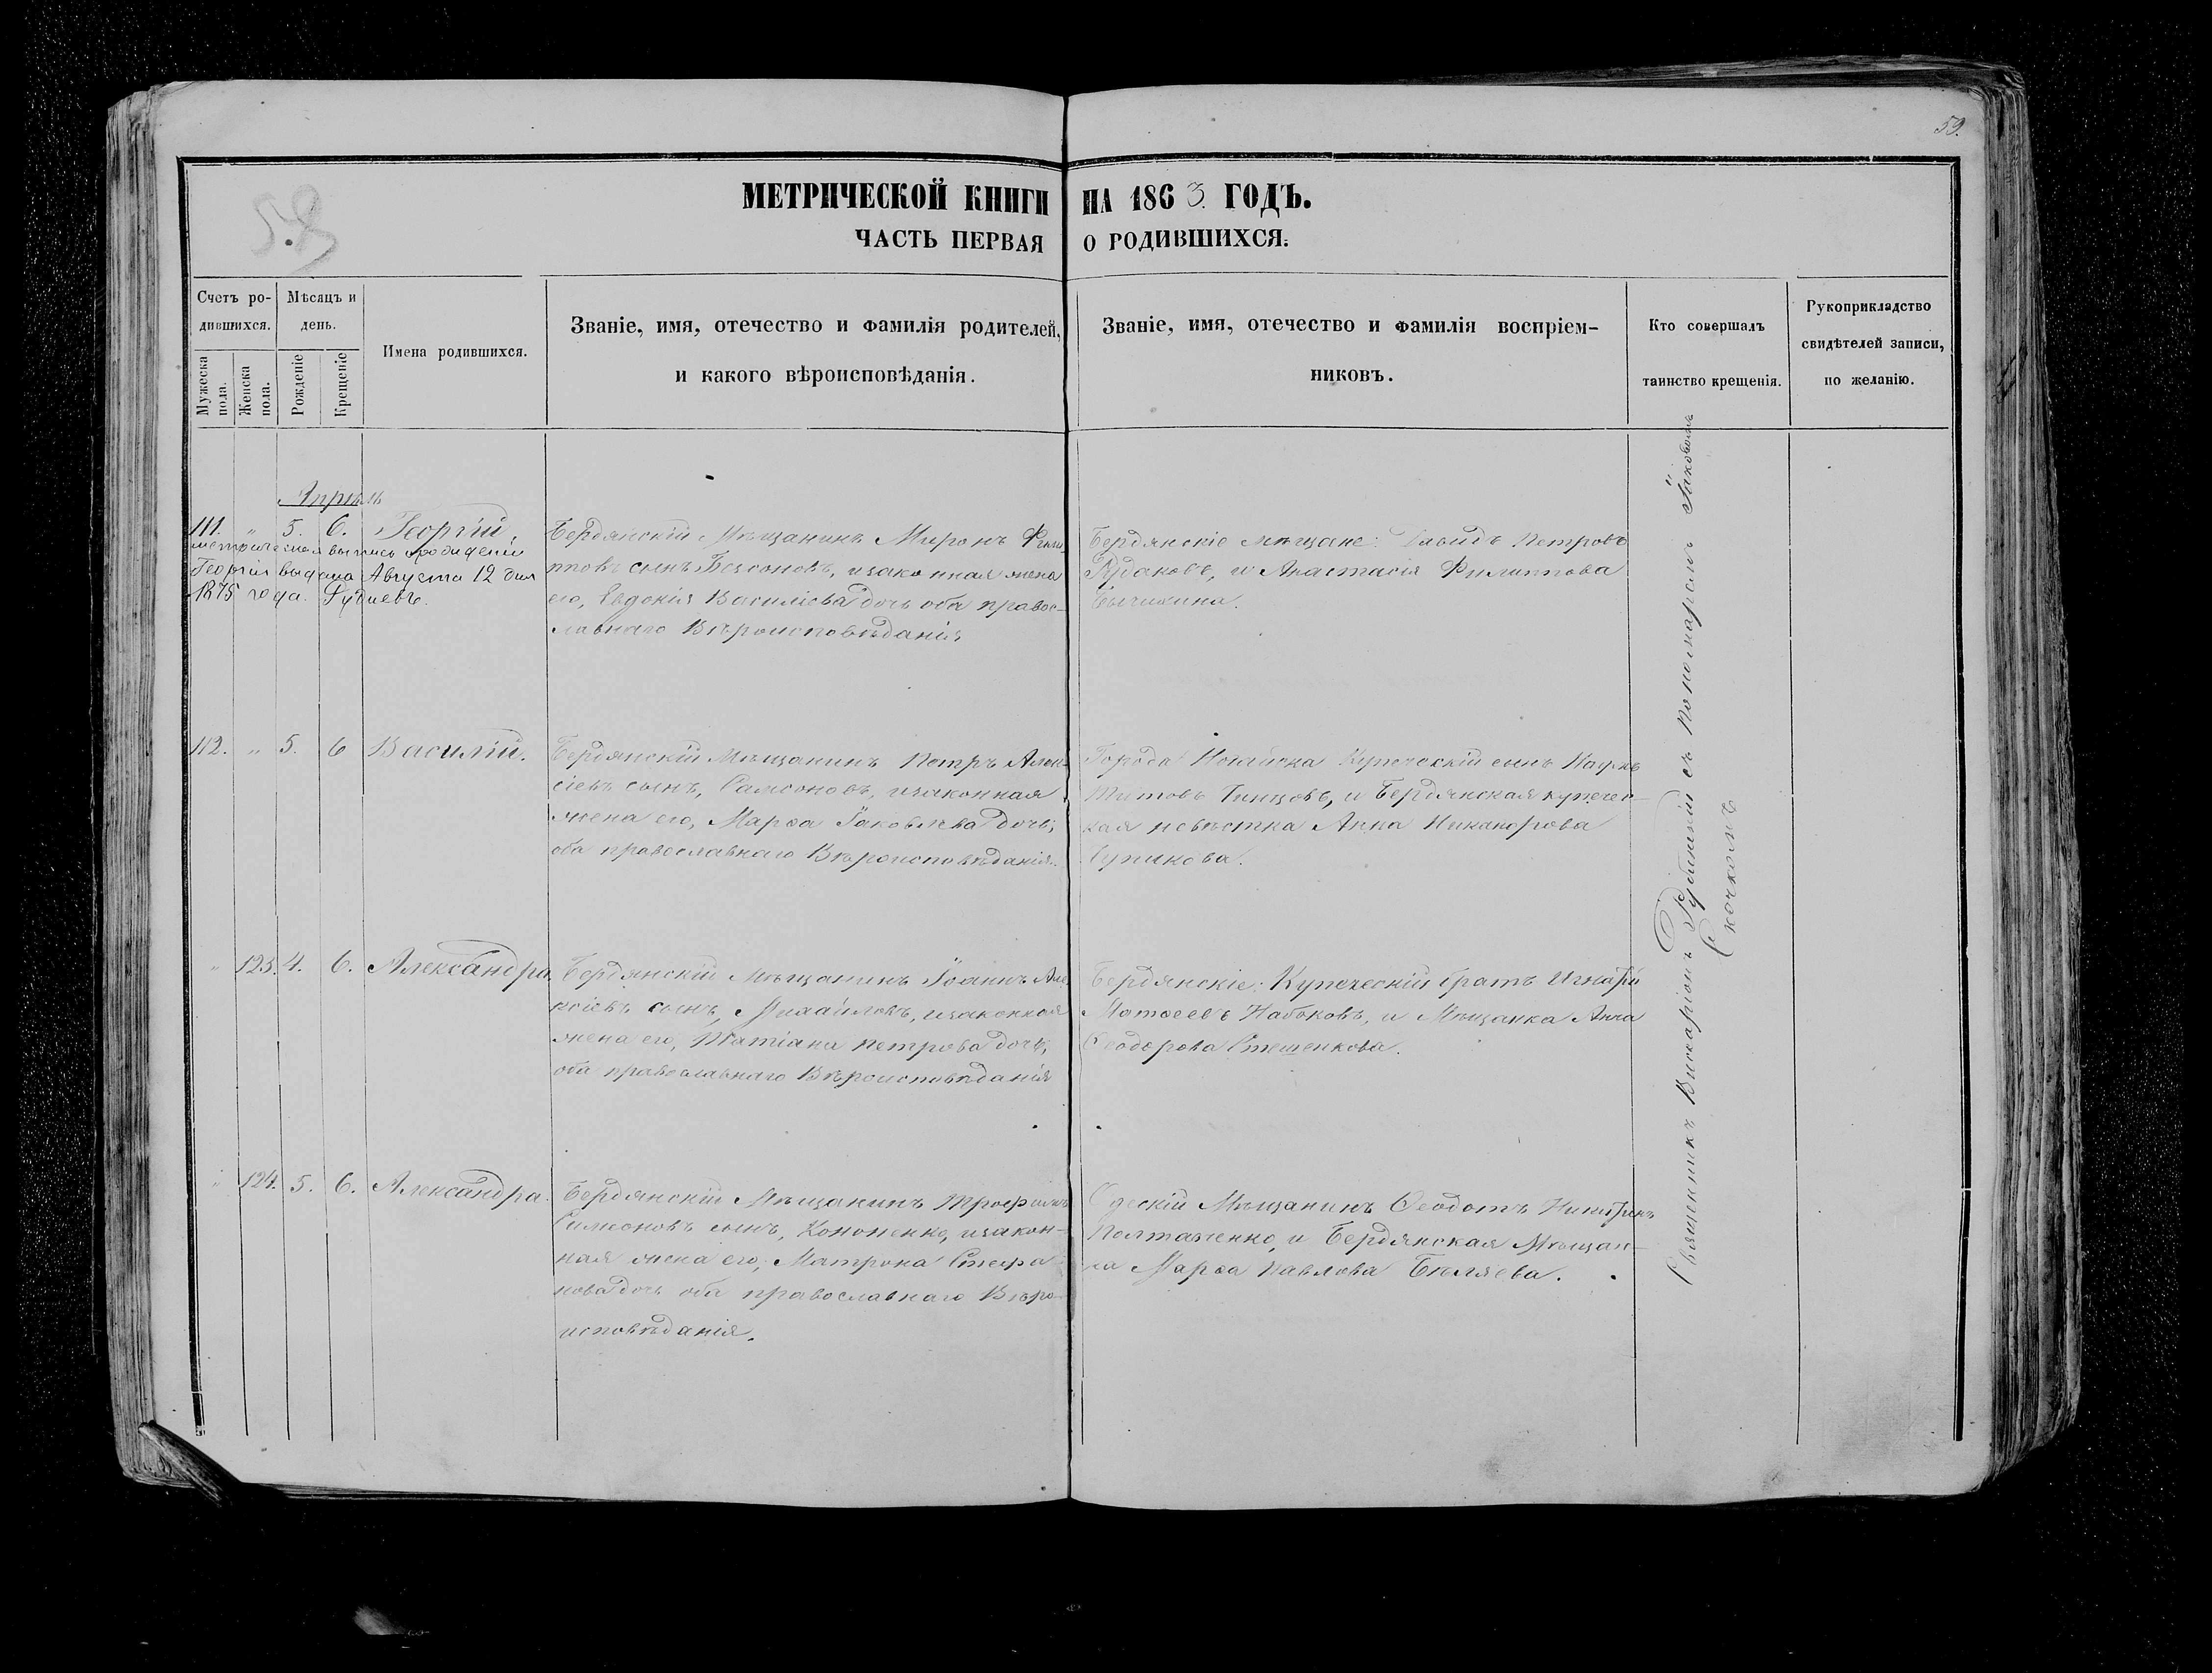 59.
58
МЕТРИЧЕСКОЙ КНИГИ НА 1863 ГОДЪ.
ЧАСТЬ ПЕРВАЯ О РОДИВШИХСЯ.
Счетъ ро-
дившихся.
Мужеска пола.
Женска пола.
Мѣсяцъ и
день.
Рожденіе
Крещеніе
Имена родившихся.
Званіе, имя, отечество и фамилія родителей,
и какого вѣроисповѣданія.
Званіе, имя, отечество и фамилія воспріем-
никовъ.
Кто совершалъ
таинство крещенія.
Рукоприкладство
свидѣтелей записи,
по желанію.
Апрѣль
111. " 5. 6. Георгій,
метрическая выпись о рождении
Георгія выдана Августа 12 дня
1875 года.
Бердянскій Мѣщанинъ Миронъ Фили-
пповъ сынъ Безсоновъ, изаконная жена
его, Евдокія Василіева дочь оба правос-
лавнаго Вѣроисповѣданія,
Бердянскіе мѣщане: Давидъ Петровъ
Рудаковъ, и Анастасія Филиппова
112. " 5. 6 Василій.
Бердянскій Мѣщанинъ Петръ Алек-
сіевъ сынъ, Самсоновъ, изаконная
жена его, Марѳа Іаковлева дочь;
оба православнаго Вѣроисповѣданія.
Города Ногайска Купеческій сынъ Наумъ
Титовъ и Бердянская купечес-
кая невѣстка Анна Никанорова
" 123. 4. 6. Александра.
Бердянскій Мѣщанинъ Іоаннъ Але-
ксіевъ сынъ, Михайловъ, изаконная
жена его, Татіана Петрова дочь,
оба православнаго Вѣроисповѣданія
Бердянскіе: Купеческій братъ Игнатій
Матѳеевъ Набоковъ, и Мѣщанка Анна
Ѳеодорова Стешенкова.
" 124. 5. 6. Александра.
Бердянскій Мѣщанинъ Трофимъ
Симеоновъ сынъ, Кононенко, изакон-
ная жена его, Матрона Стефа-
нова дочь оба православнаго Вѣро-
исповѣданія.
Одескій Мѣщанинъ Ѳеодотъ
Полтавченко, и Бердянская Мѣщан-
ка Марѳа Павлова Бѣляева.
Священникъ Виссаріонъ съ Пономаремъ Іаковомъ
Скочкомъ